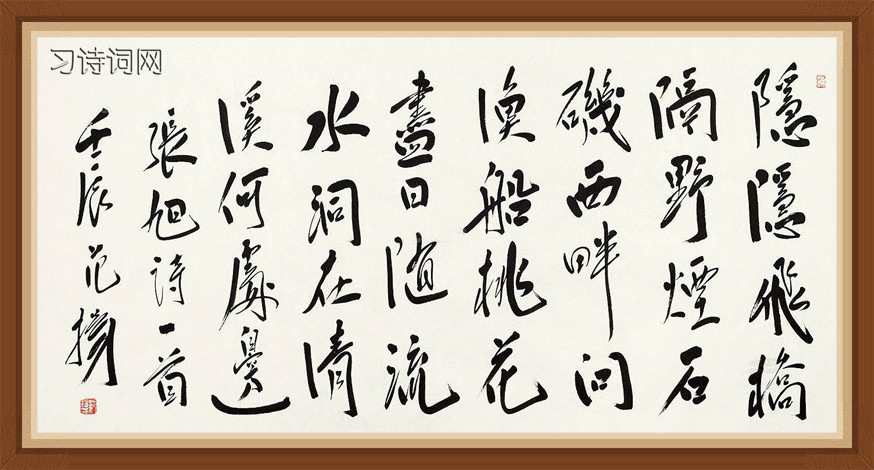 習诗词网
隱隱飛橋
隔野煙石
磯西畔问
漁船桃花
盡日随流
水洞在清
溪何處邊
張旭诗一首
壬辰范